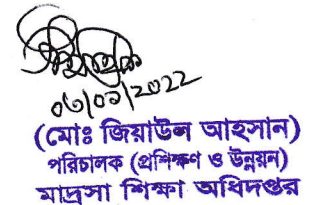 ০৩/০১/২০২২
(মোঃ জিয়াউল আহসান)
পরিচালক (প্রশিক্ষণ ও উন্নয়ন)
মাদ্রাসা শিক্ষা অধিদপ্তর